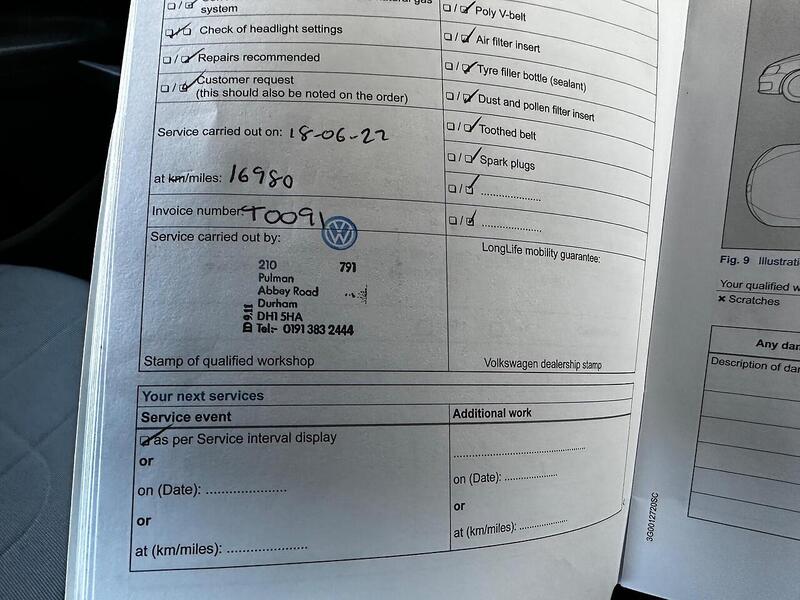 system
Check of headlight settings
Repairs recommended
Customer request
(this should also be noted on the order)
Service carried out on: 18-06-22
at km/miles: 16980
Invoice number: T0091
Service carried out by:
210 791
Pulman
Abbey Road
Durham
DH1 5HA
Tel:- 0191 383 2444
Stamp of qualified workshop
Poly V-belt
Air filter insert
Tyre filler bottle (sealant)
Dust and pollen filter insert
Toothed belt
Spark plugs
LongLife mobility guarantee:
Volkswagen dealership stamp
Your next services
Service event
as per Service interval display
or
on (Date): ......................
or
at (km/miles): ......................
Additional work
on (Date): ..............
or
at (km/miles): ..............
3G0012720SC
Fig. 9 Illustratio
Your qualified w
× Scratches
Any dam
Description of dam